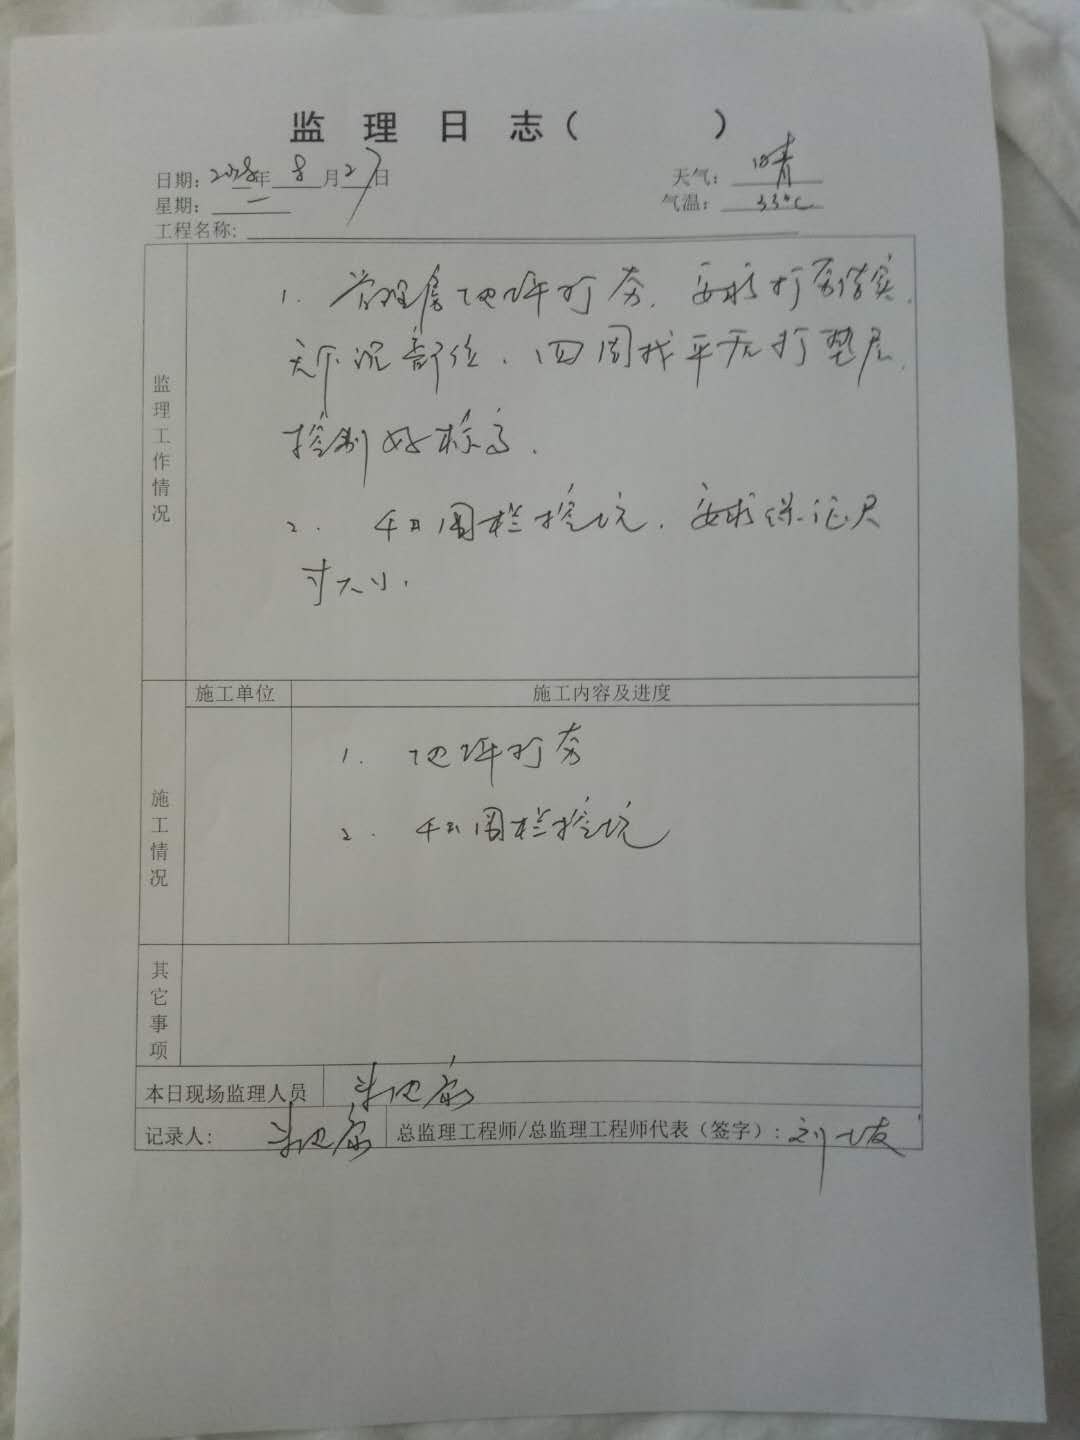 监理日志（ ）
日期：2018年8月27日 天气：晴
星期：一 气温：33℃
工程名称：
监理工作情况
1. 管理房地坪打夯，要求打夯密实，
无下沉部位，四周找平后打垫层，
控制好标高。
2. 围栏挖坑，要求保证尺
寸大小。
施工单位 施工内容及进度
施工情况
1. 地坪打夯
2. 围栏挖坑
其它事项
本日现场监理人员
记录人： 总监理工程师/总监理工程师代表（签字）：刘